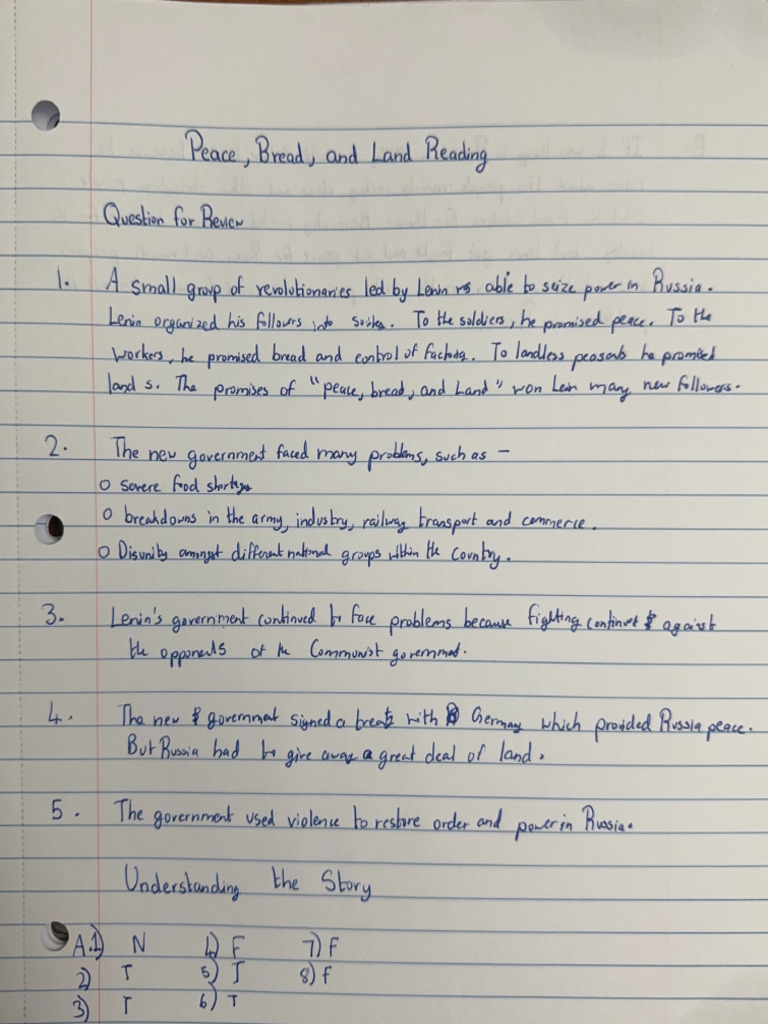 Peace, Bread, and Land Reading
Question for Review
1. A small group of revolutionaries led by Lenin able to seize power in Russia.
Lenin organized his followers into . To the soldiers, he promised peace. To the
workers, he promised bread and control of . To landless peasants he promised
land s. The promises of "peace, bread, and Land" won Lein many new followers.
2. The new government faced many problems, such as -
o severe food shortage
o breakdowns in the army, industry, railway transport and commerce.
o Disunity amongst different national groups within the country.
3. Lenin's government continued to face problems because fighting continued against
the opponents of the Communist government.
4. The new government signed a with Germany which provided Russia peace.
But Russia had to give away a great deal of land.
5. The government used violence to restore order and power in Russia.
Understanding the Story
A.1) N 4) F 7) F
2) T 5) T 8) F
3) T 6) T